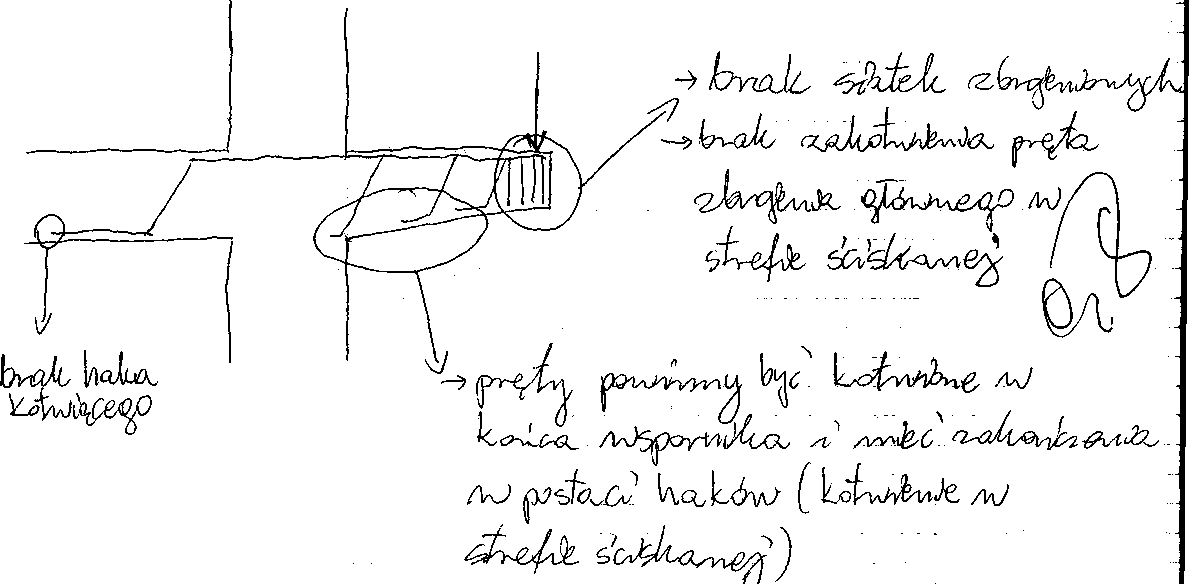 → brak siatek zbrojeniowych
→ brak zakotwienia pręta
zbrojenia głównego w
strefie ściskanej
brak haka
kotwiącego
→ pręty powinny być kotwione w
końca wspornika i mieć zakończenia
w postaci haków (kotwienie w
strefie ściskanej)